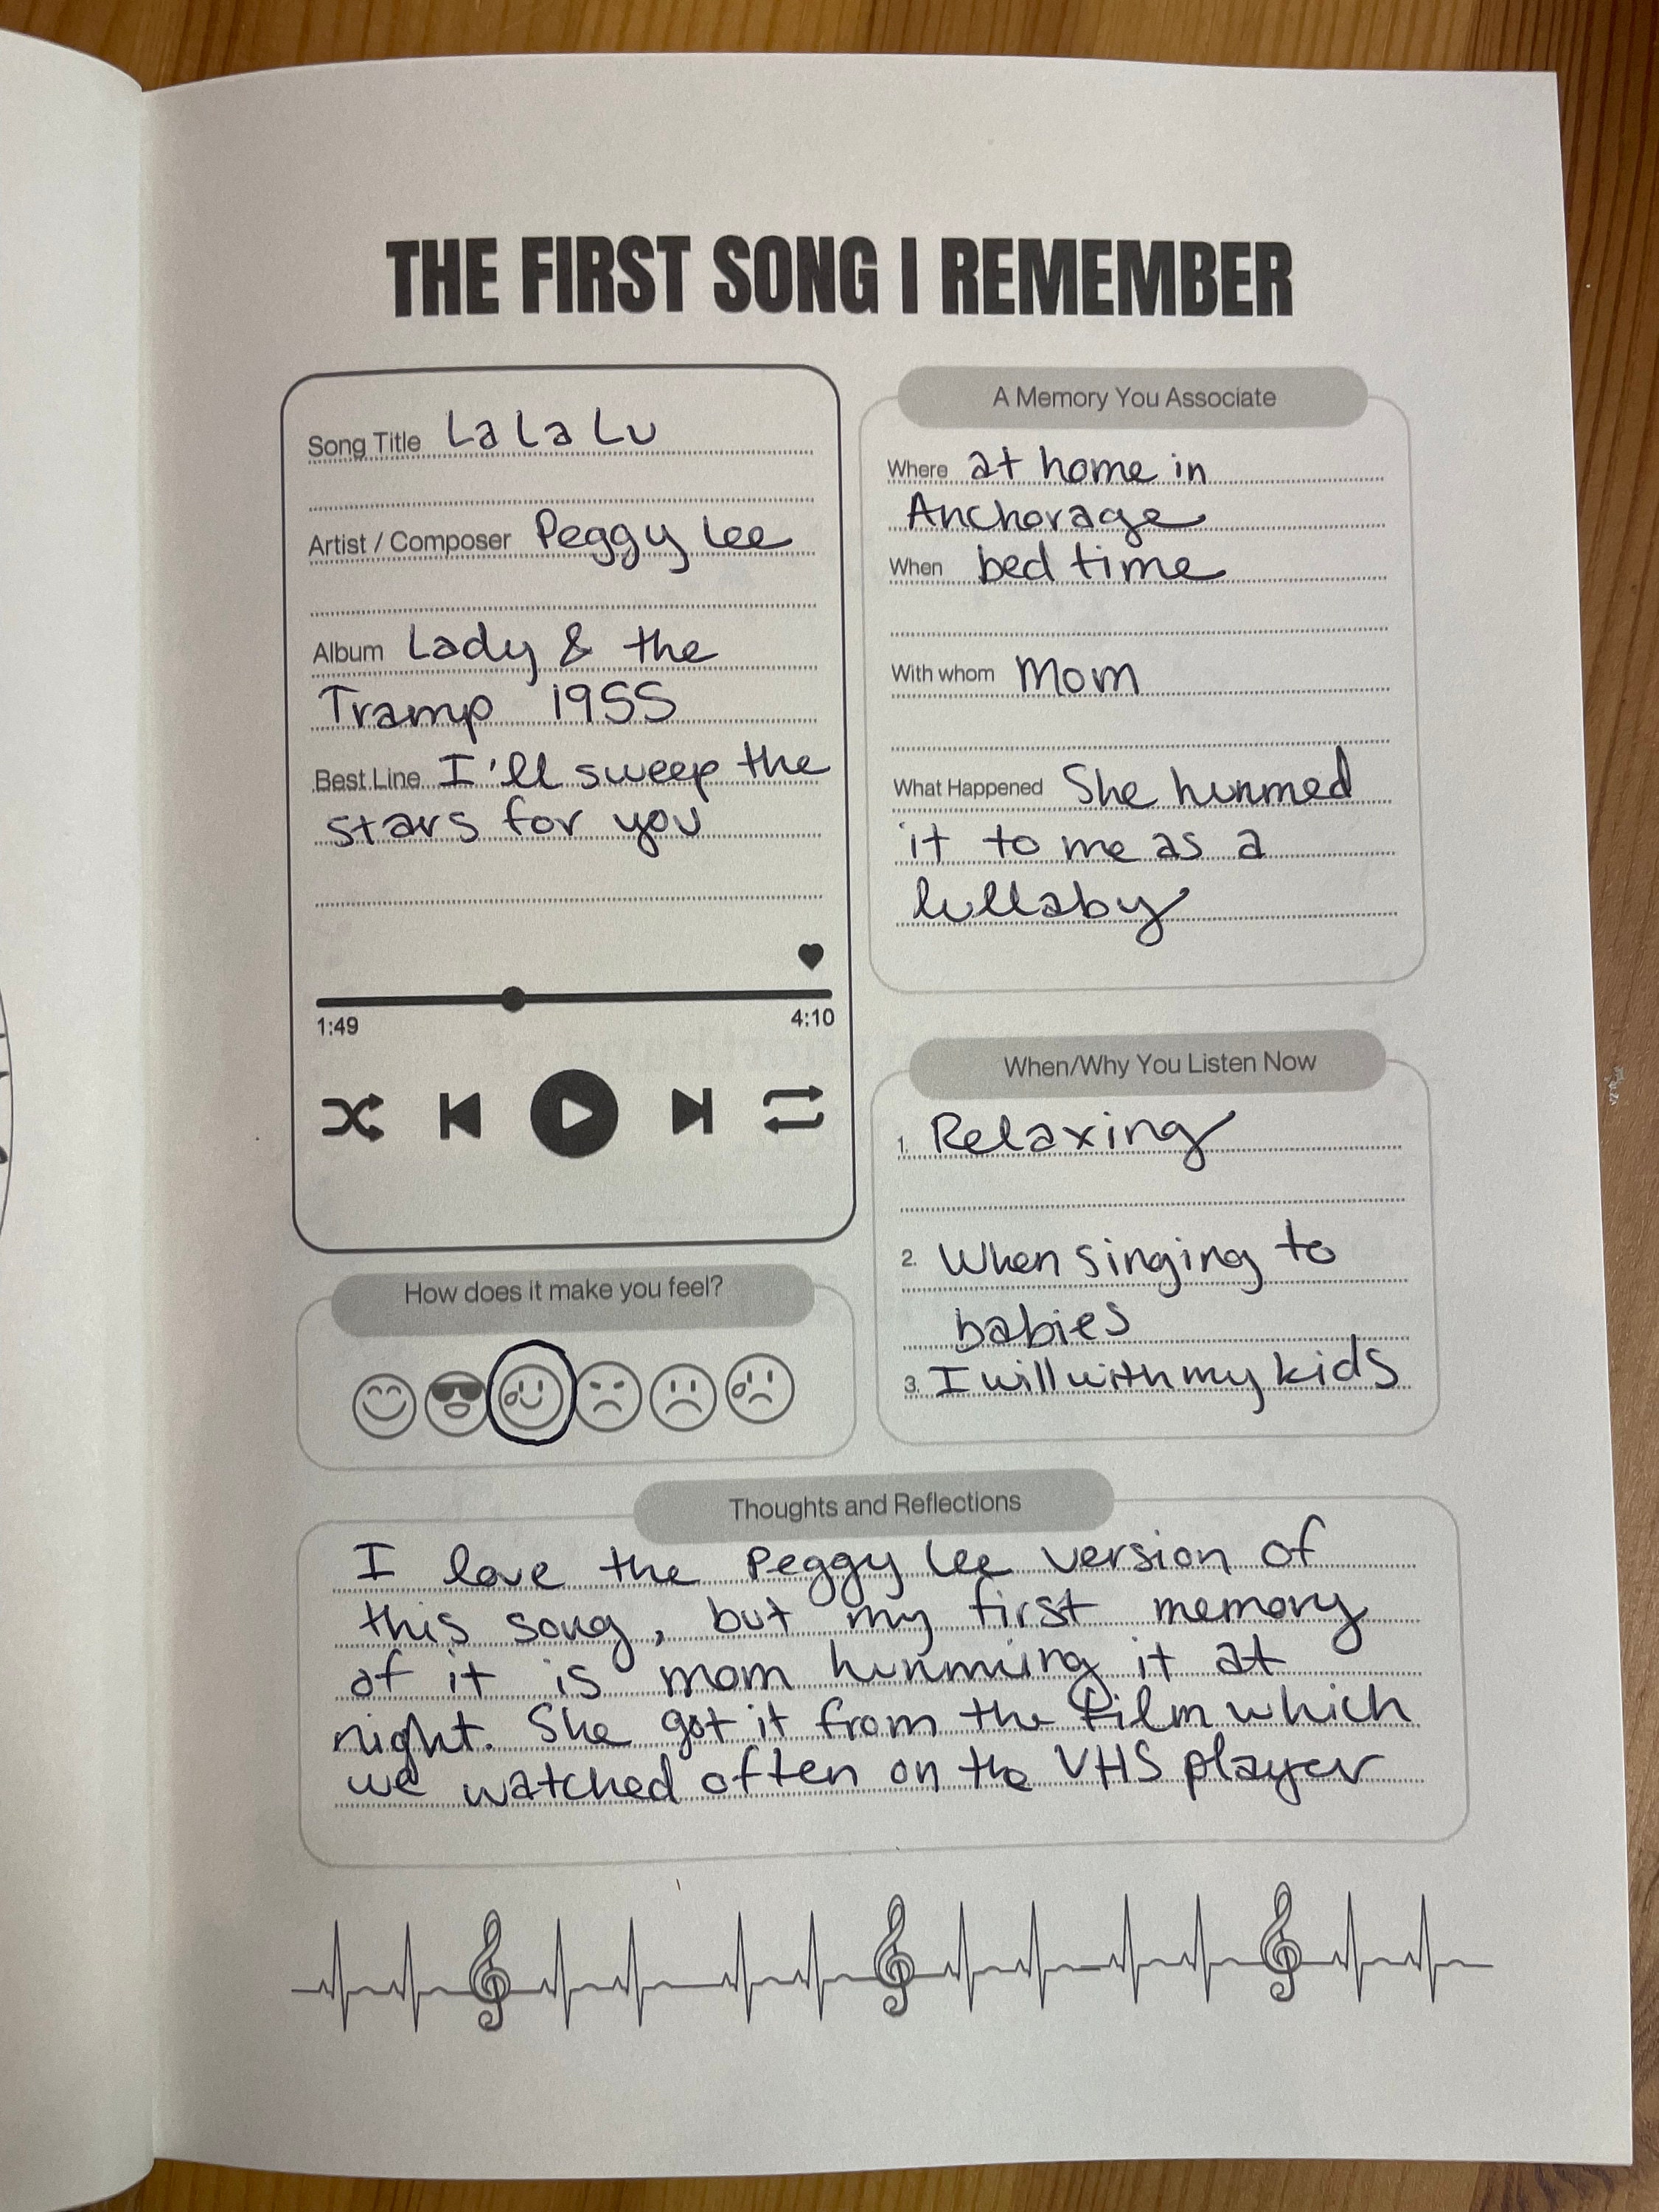 THE FIRST SONG I REMEMBER
Song Title La La Lu
Artist / Composer Peggy Lee
Album Lady & the
Tramp 1955
Best Line I'll sweep the
stars for you
1:49 4:10
How does it make you feel?
A Memory You Associate
Where at home in
Anchorage
When bed time
With whom Mom
What Happened She hummed
it to me as a
lullaby
When/Why You Listen Now
1. Relaxing
2. When singing to
babies
3. I will with my kids
Thoughts and Reflections
I love the Peggy Lee version of
this song, but my first memory
of it is mom humming it at
night. She got it from the film which
we watched often on the VHS player